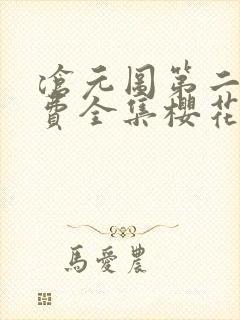 滄元图第二
費全集櫻花
馬愛農